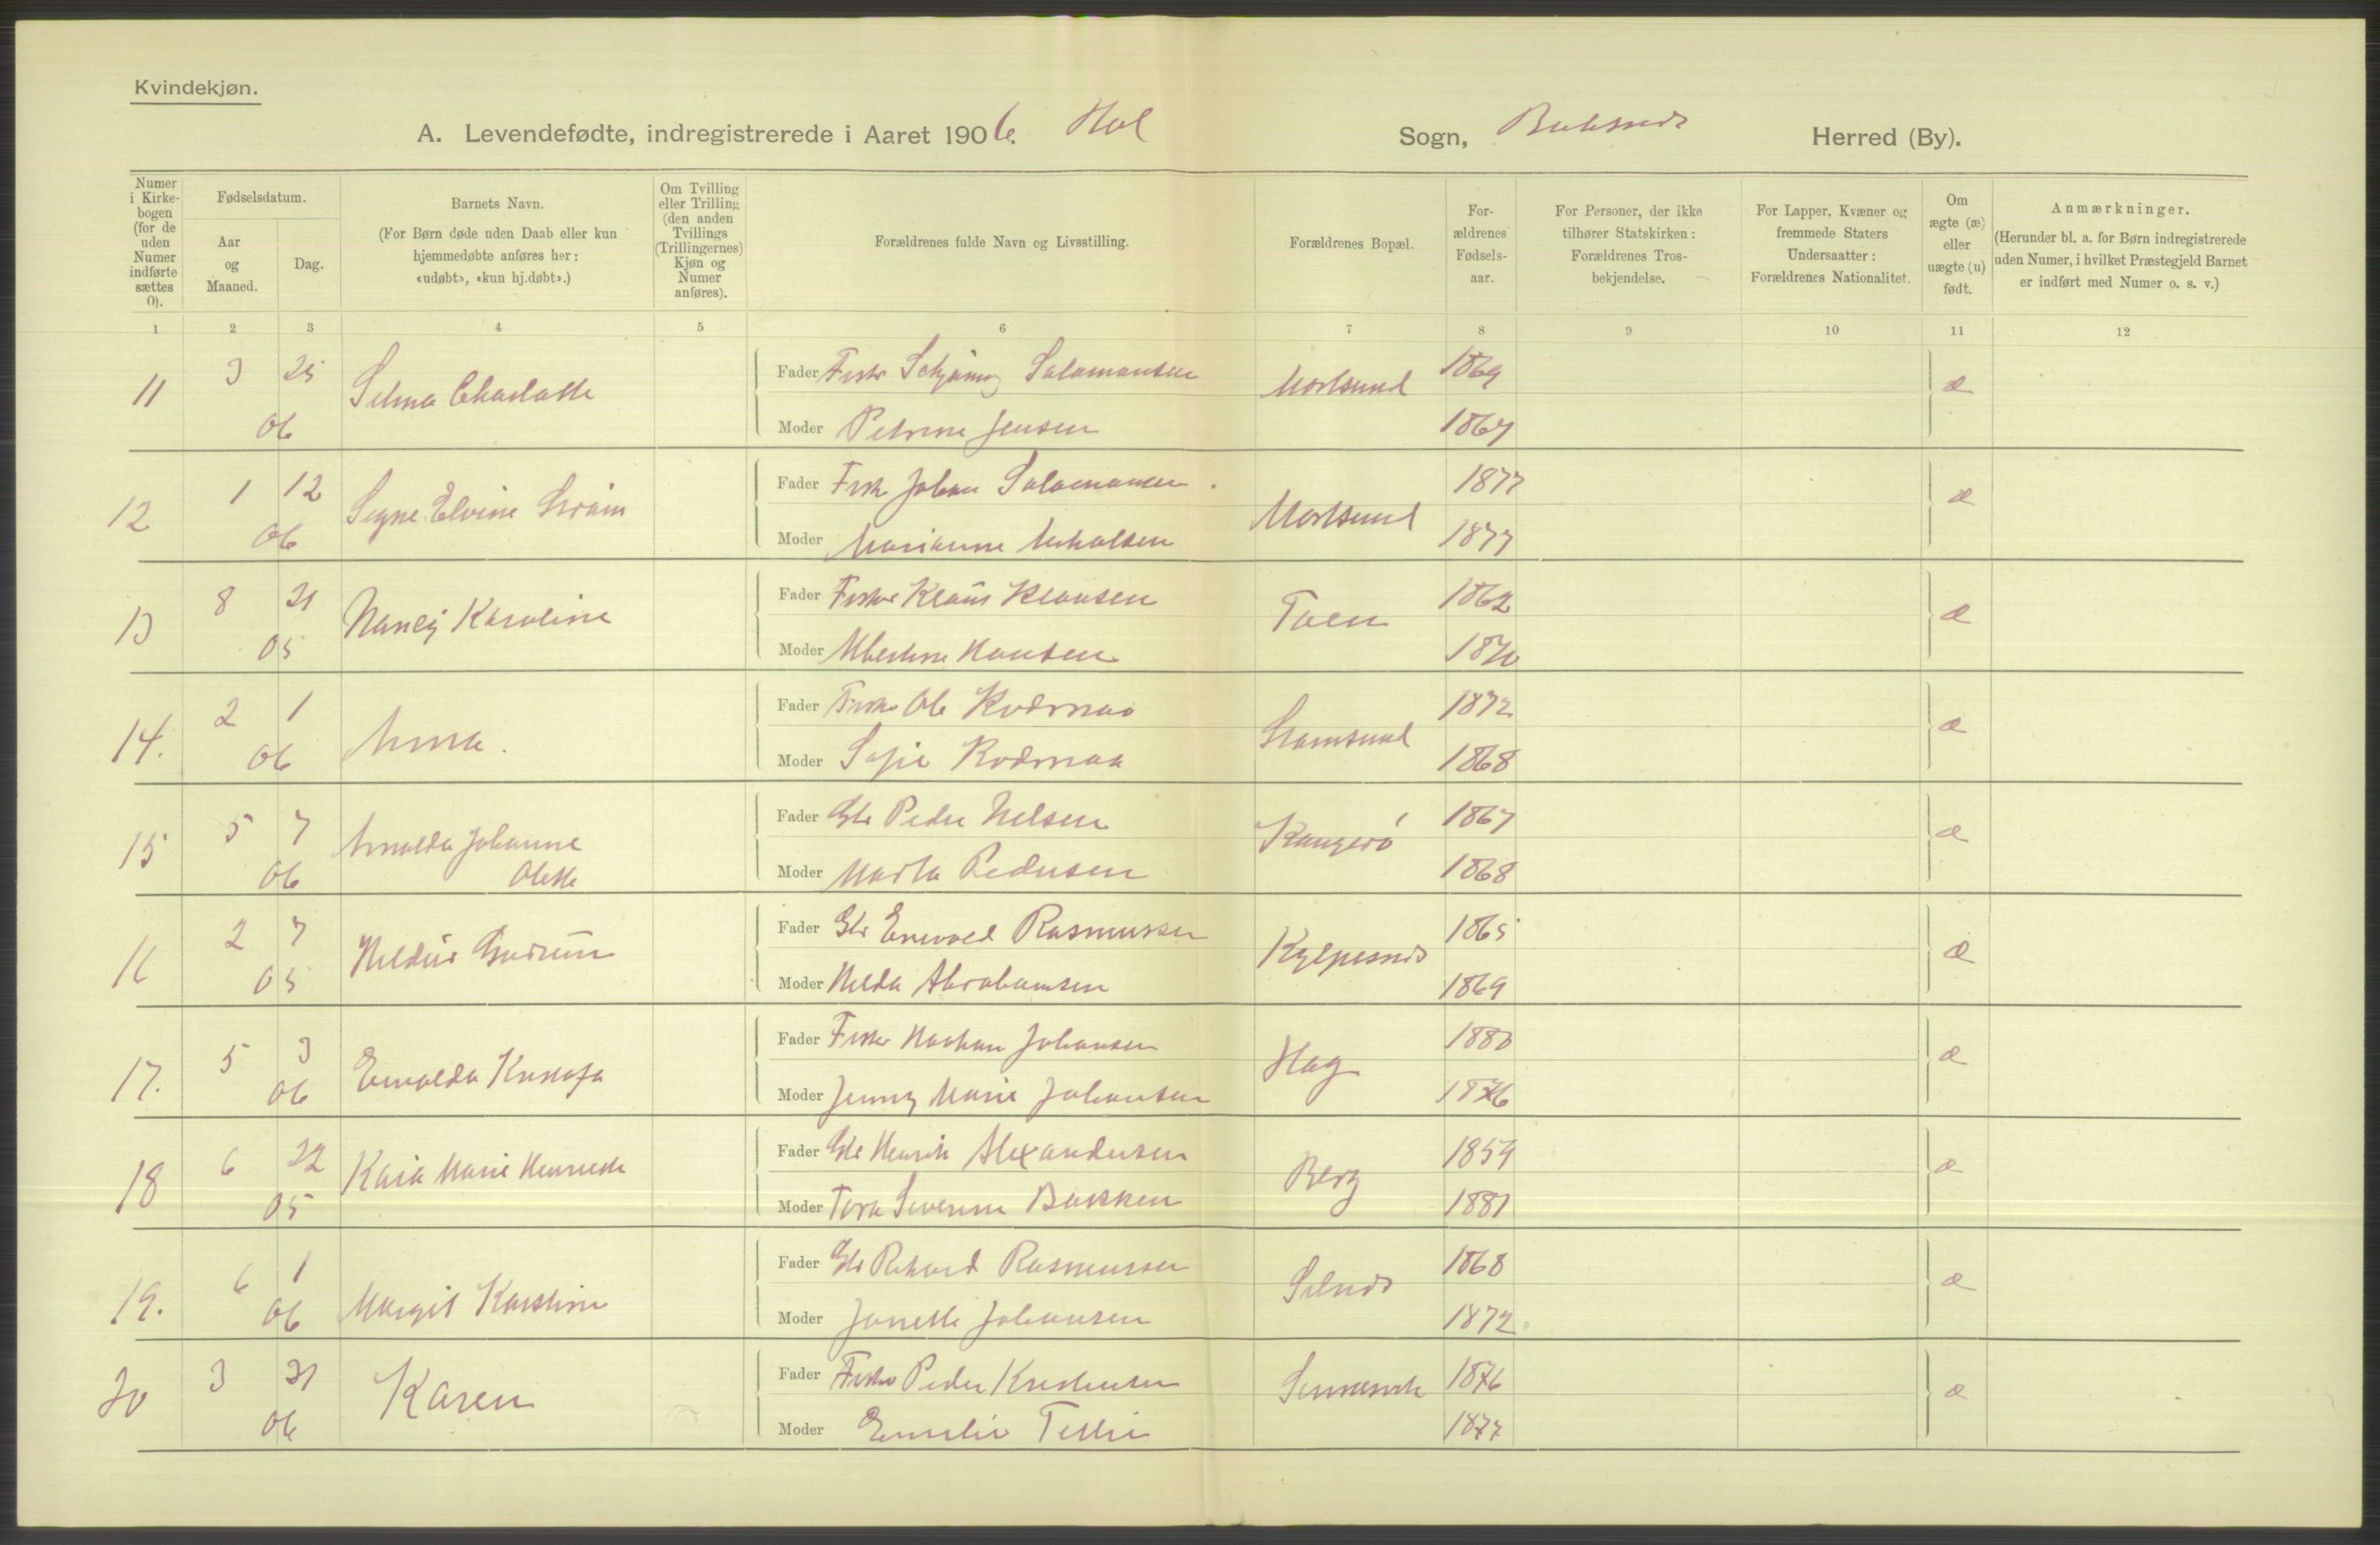 Kvindekjøn.
A. Levendefødte, indregistrerede i Aaret 1906. Hol Sogn, Buksnes Herred (By).
Numer i Kirkebogen (for de uden Numer indførte sættes 0).
Fødselsdatum.
Aar og Maaned.
Dag.
Barnets Navn.
(For Børn døde uden Daab eller kun hjemmedøbte anføres her: «udøbt», «kun hj.døbt».)
Om Tvilling eller Trilling (den anden Tvillings (Trillingernes) Kjøn og Numer anføres).
Forældrenes fulde Navn og Livsstilling.
Forældrenes Bopæl.
Forældrenes Fødselsaar.
For Personer, der ikke tilhører Statskirken: Forældrenes Trosbekjendelse.
For Lapper, Kvæner og fremmede Staters Undersaatter: Forældrenes Nationalitet.
Om ægte (æ) eller uægte (u) født.
Anmærkninger.
(Herunder bl. a. for Børn indregistrerede uden Numer, i hvilket Præstegjeld Barnet er indført med Numer o. s. v.)
1 2 3 4 5 6 7 8 9 10 11 12
11 3 25 06 Selma Charlotte
Fader Fisker Salamonsen Mortsund 1869 æ
Moder Petrine Jensen 1867
12 1 12 06 Signe Elvine
Fader Fisk Johan Salamonsen Mortsund 1877 æ
Moder Marianne 1877
13 8 31 05 Nancy Karoline
Fader Fisker Klaus Klausen Toen 1862 æ
Moder Albertine Hansen 1870
14. 2 1 06 Anna.
Fader Fisker Ole Stamsund 1872 æ
Moder Sofie 1868
15 5 7 06 Arnolda Johanne
Olette
Fader Gbr Peder Nelsen 1867 æ
Moder Marta Pedersen 1868
16 2 7 05 Hildur Gudrun
Fader Gbr Enevold Rasmussen 1865 æ
Moder Hilda Abrahamsen 1869
17. 5 3 06
Fader Fisker Haakon Johansen Hag 1880 æ
Moder Jenny Marie Johansen 1876
18 6 22 05 Kaia Marie
Fader Gbr Henrik Alexandersen Berg 1859 æ
Moder Tora Severine Bakken 1881
19. 6 1 06 Margit Karstine
Fader Gbr Rikard Rasmussen 1868 æ
Moder Janette Johansen 1872
20 3 31 06 Karen
Fader Fisker Peder Kristensen 1876 æ
Moder Emilie 1877